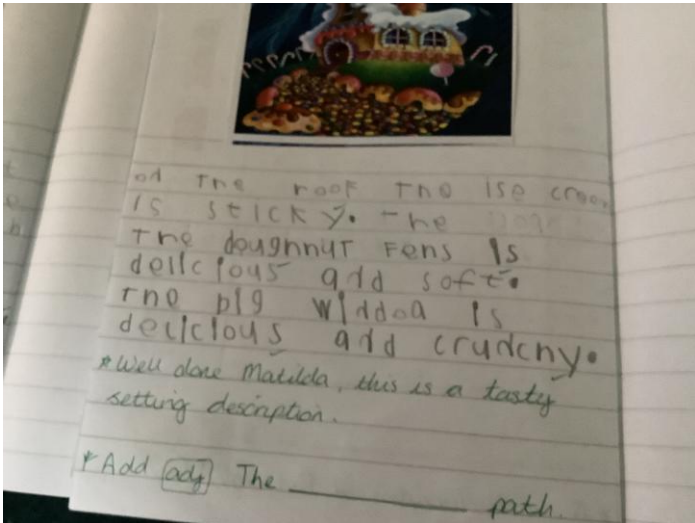 on The roof The ise cream
is sticky. The
The doughnut Fens is
delicious and soft.
The big widdoa is
delicious and crunchy.
* Well done Matilda, this is a tasty
setting description.
* Add adj The __________ path.